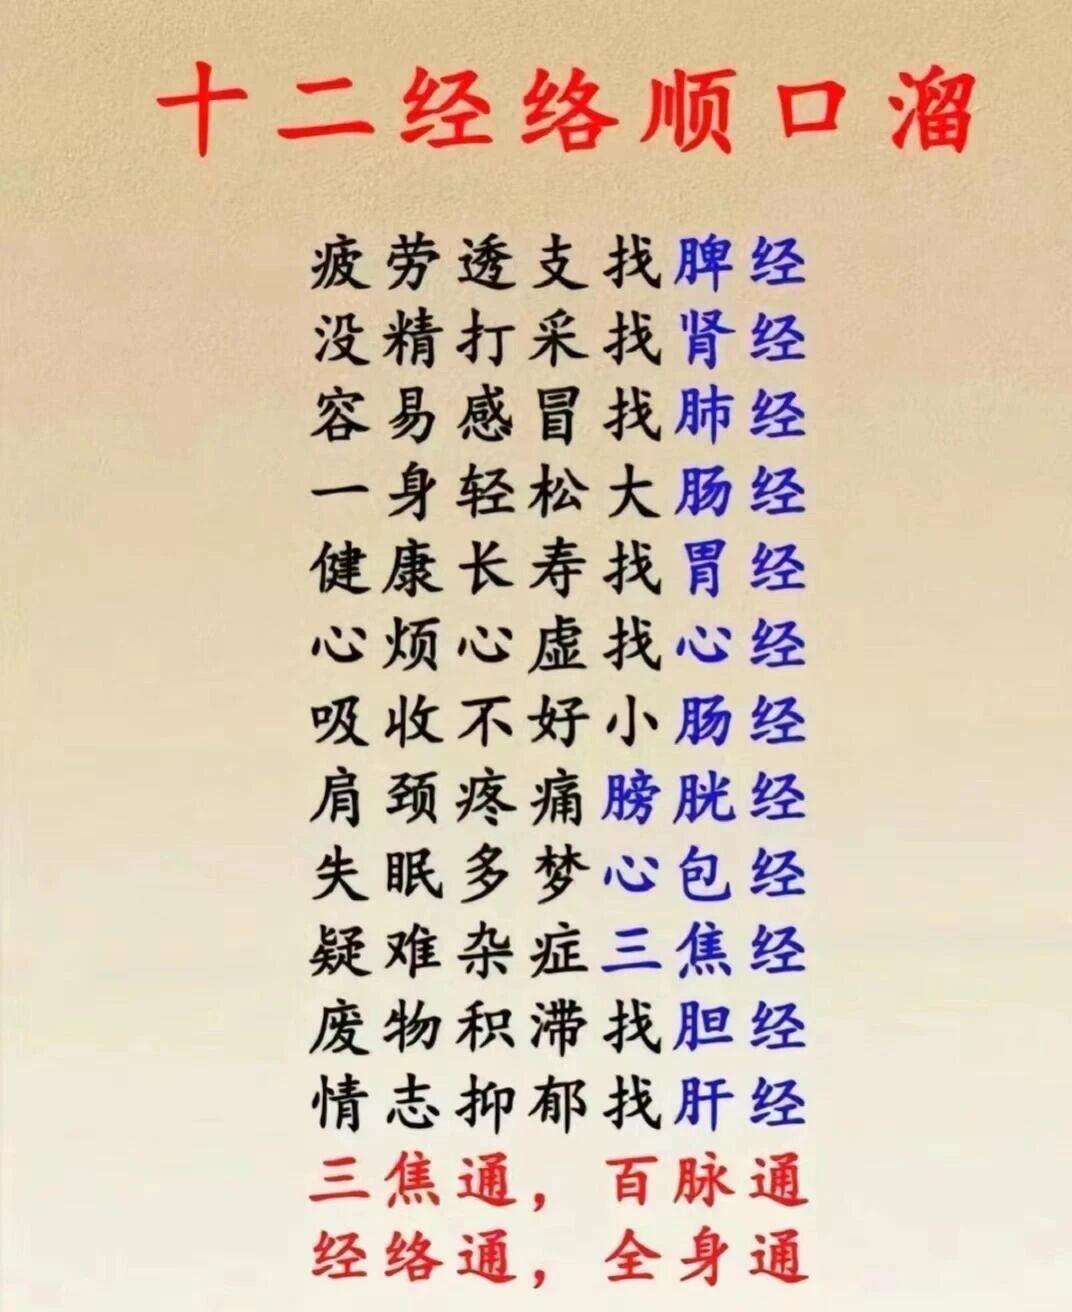 十二经络顺口溜
疲劳透支找脾经
没精打采找肾经
容易感冒找肺经
一身轻松大肠经
健康长寿找胃经
心烦心虚找心经
吸收不好小肠经
肩颈疼痛膀胱经
失眠多梦心包经
疑难杂症三焦经
废物积滞找胆经
情志抑郁找肝经
三焦通，百脉通
经络通，全身通